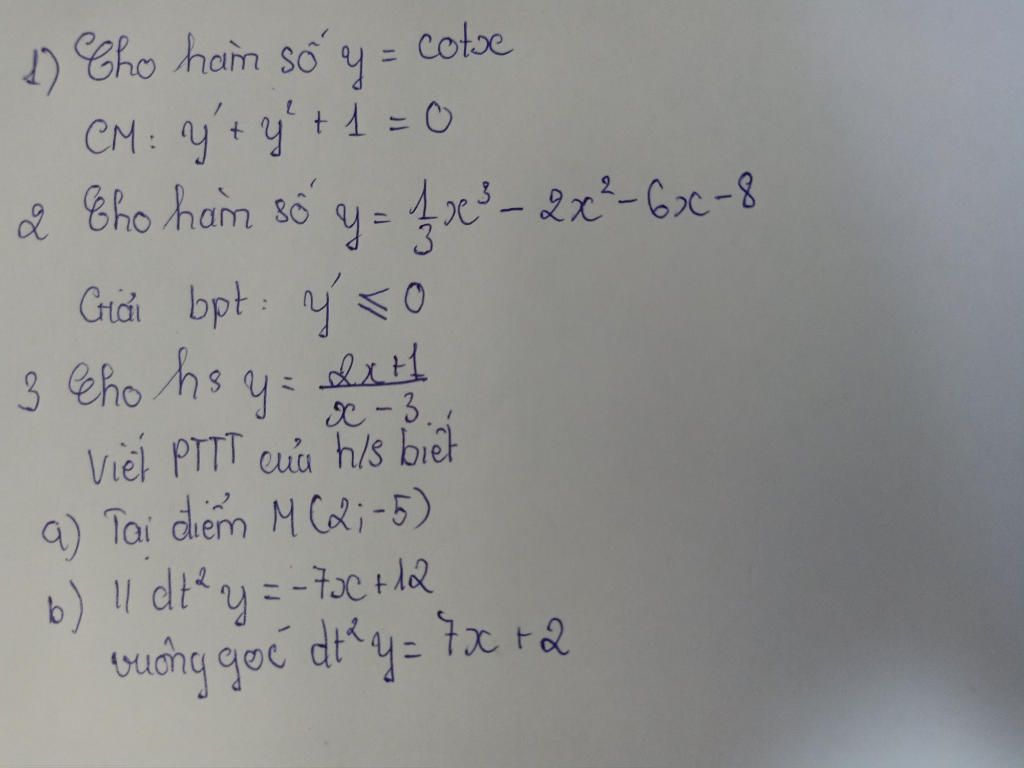 1) Cho hàm số y = cotx
CM: y' + y² + 1 = 0
2 Cho hàm số y = 1/3 x³ - 2x² - 6x - 8
Giải bpt: y' ⩽ 0
3 Cho hs y = (2x+1)/(x-3)
Viết PTTT của h/s biết
a) Tại điểm M(2;-5)
b) // dt² y = -7x+12
vuông góc dt² y = 7x + 2